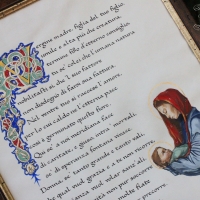 ergine madre, figlia del tuo figlio,
umile e alta più che creatura,
termine fisso d'etterno consiglio,
tu se' colei che l'umana natura
nobilitasti sì, che 'l suo fattore
non disdegnò di farsi sua fattura.
Nel ventre tuo si raccese l'amore,
per lo cui caldo ne l'etterna pace
così è germinato questo fiore.
Qui se' a noi meridiana face
di caritate, e giuso, intra' mortali,
se' di speranza fontana vivace.
Donna, se' tanto grande e tanto vali,
che qual vuol grazia e a te non ricorre,
sua disianza vuol volar sanz' ali.
non pur soccorre
molte fiate